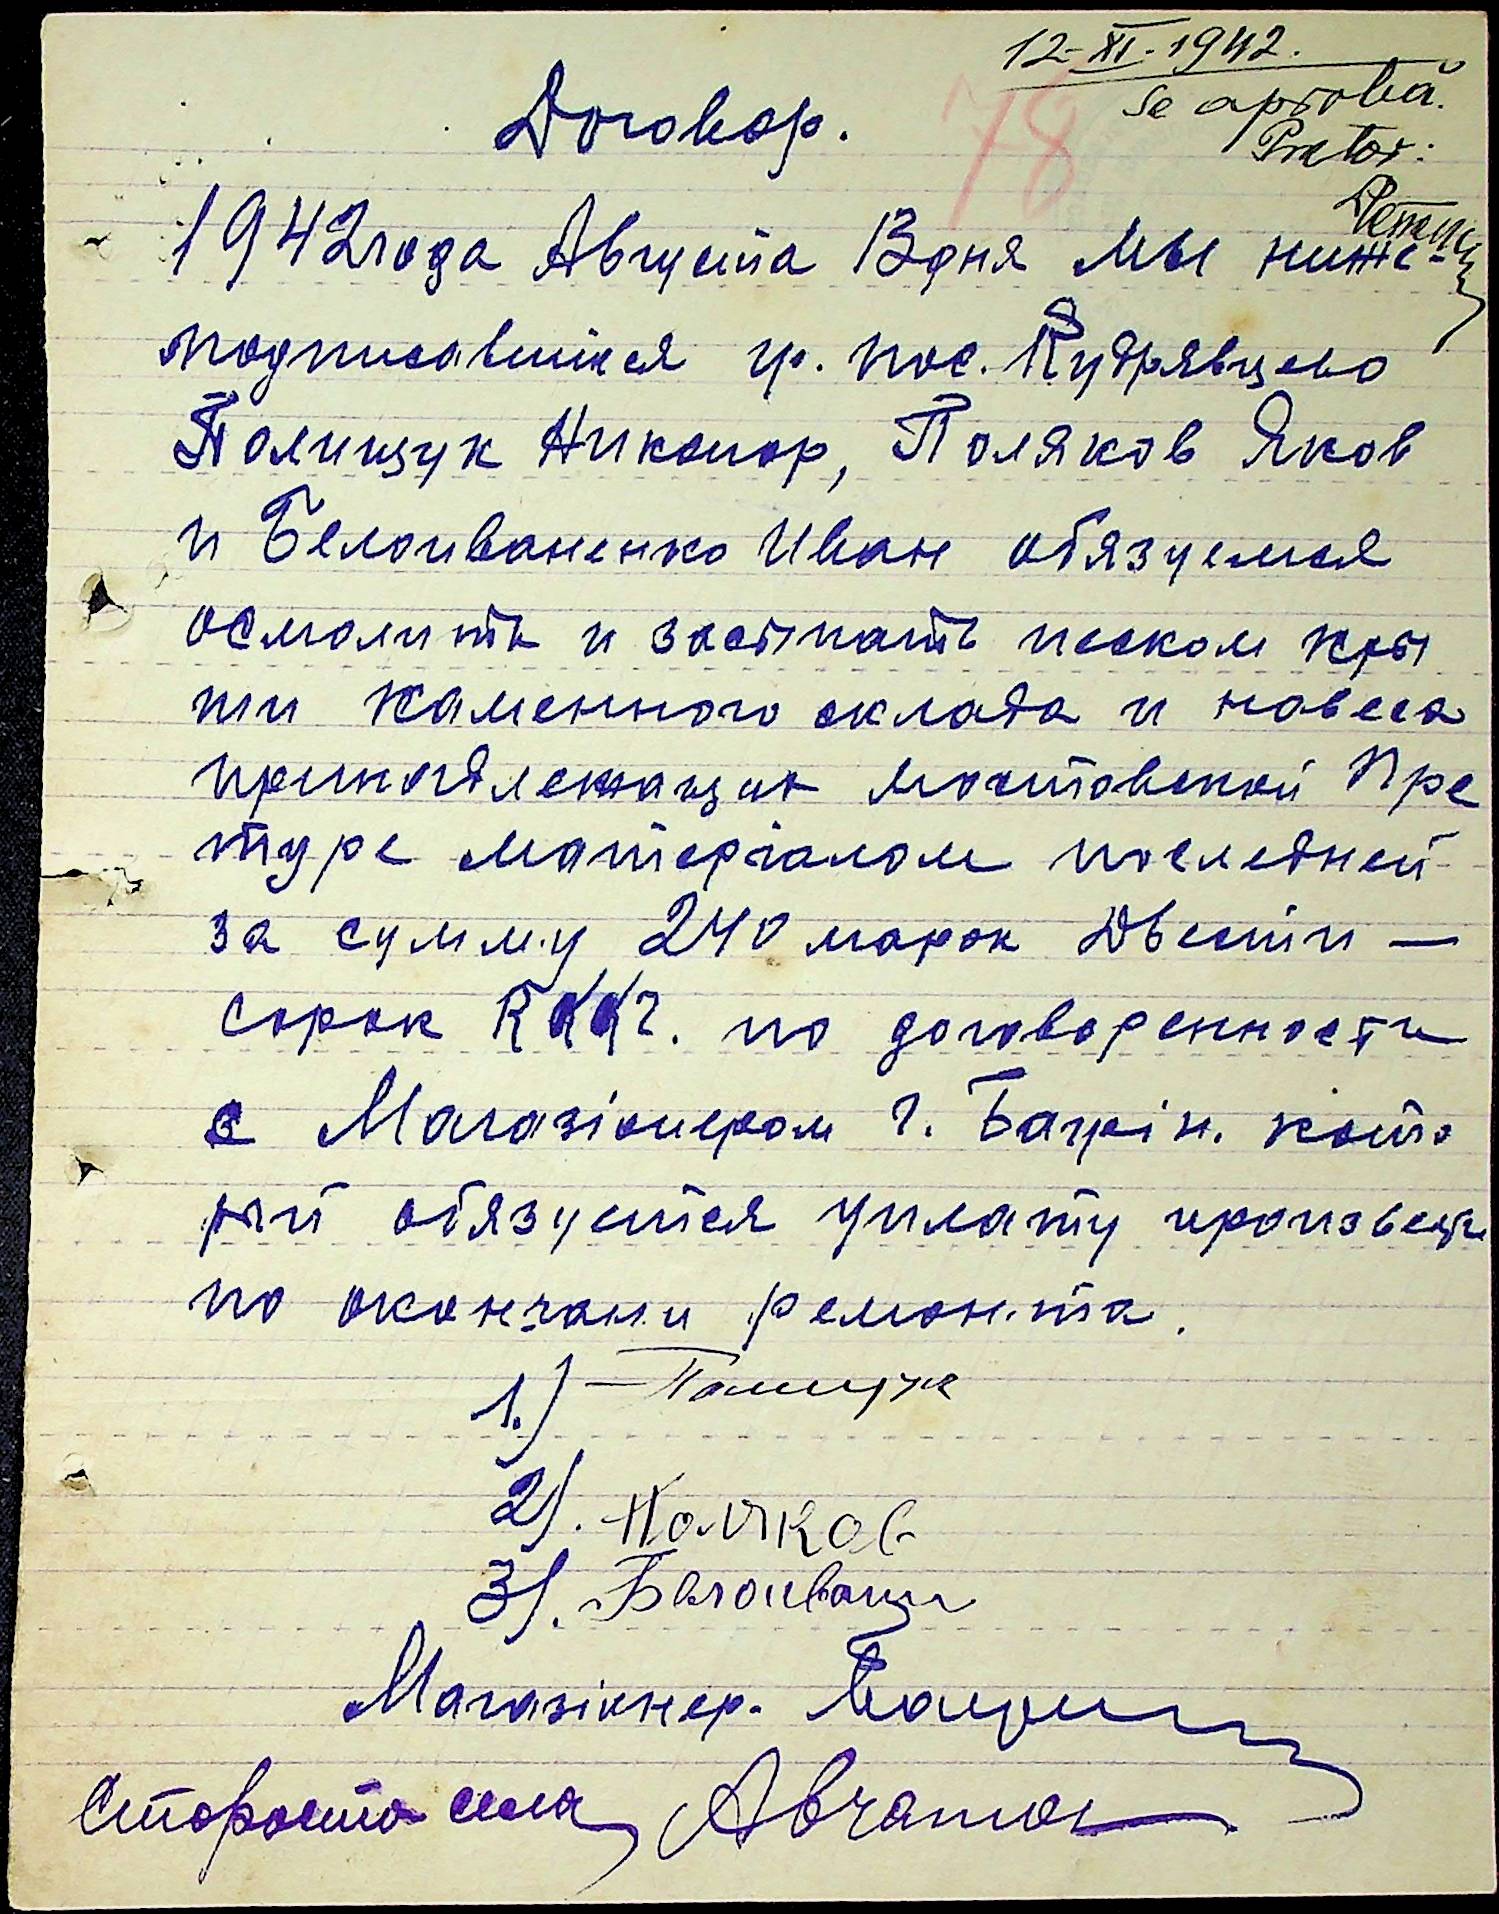 12-XI-1942.
Se aprobă.
Pretor:
78
Договор.
1942 года Августа 13 дня мы ниже-
подписавшиеся гр. пос. Кудрявцево
Полищук Никонор, Поляков Яков
и Белоиваненко Иван обязуемся
осмолить и засыпать песком кры
ши каменного склада и навеса
принадлежащих мостовской Пре
туре матерiалом последней
за сумму 240 марок Двести —
сорок по договоренности
с Магазiонером г. Багрiн. кото
рый обязуется уплату произвести
по окончани ремонта.
1.) Полищук
2). Поляков
3).
Магазiонер.
Староста села